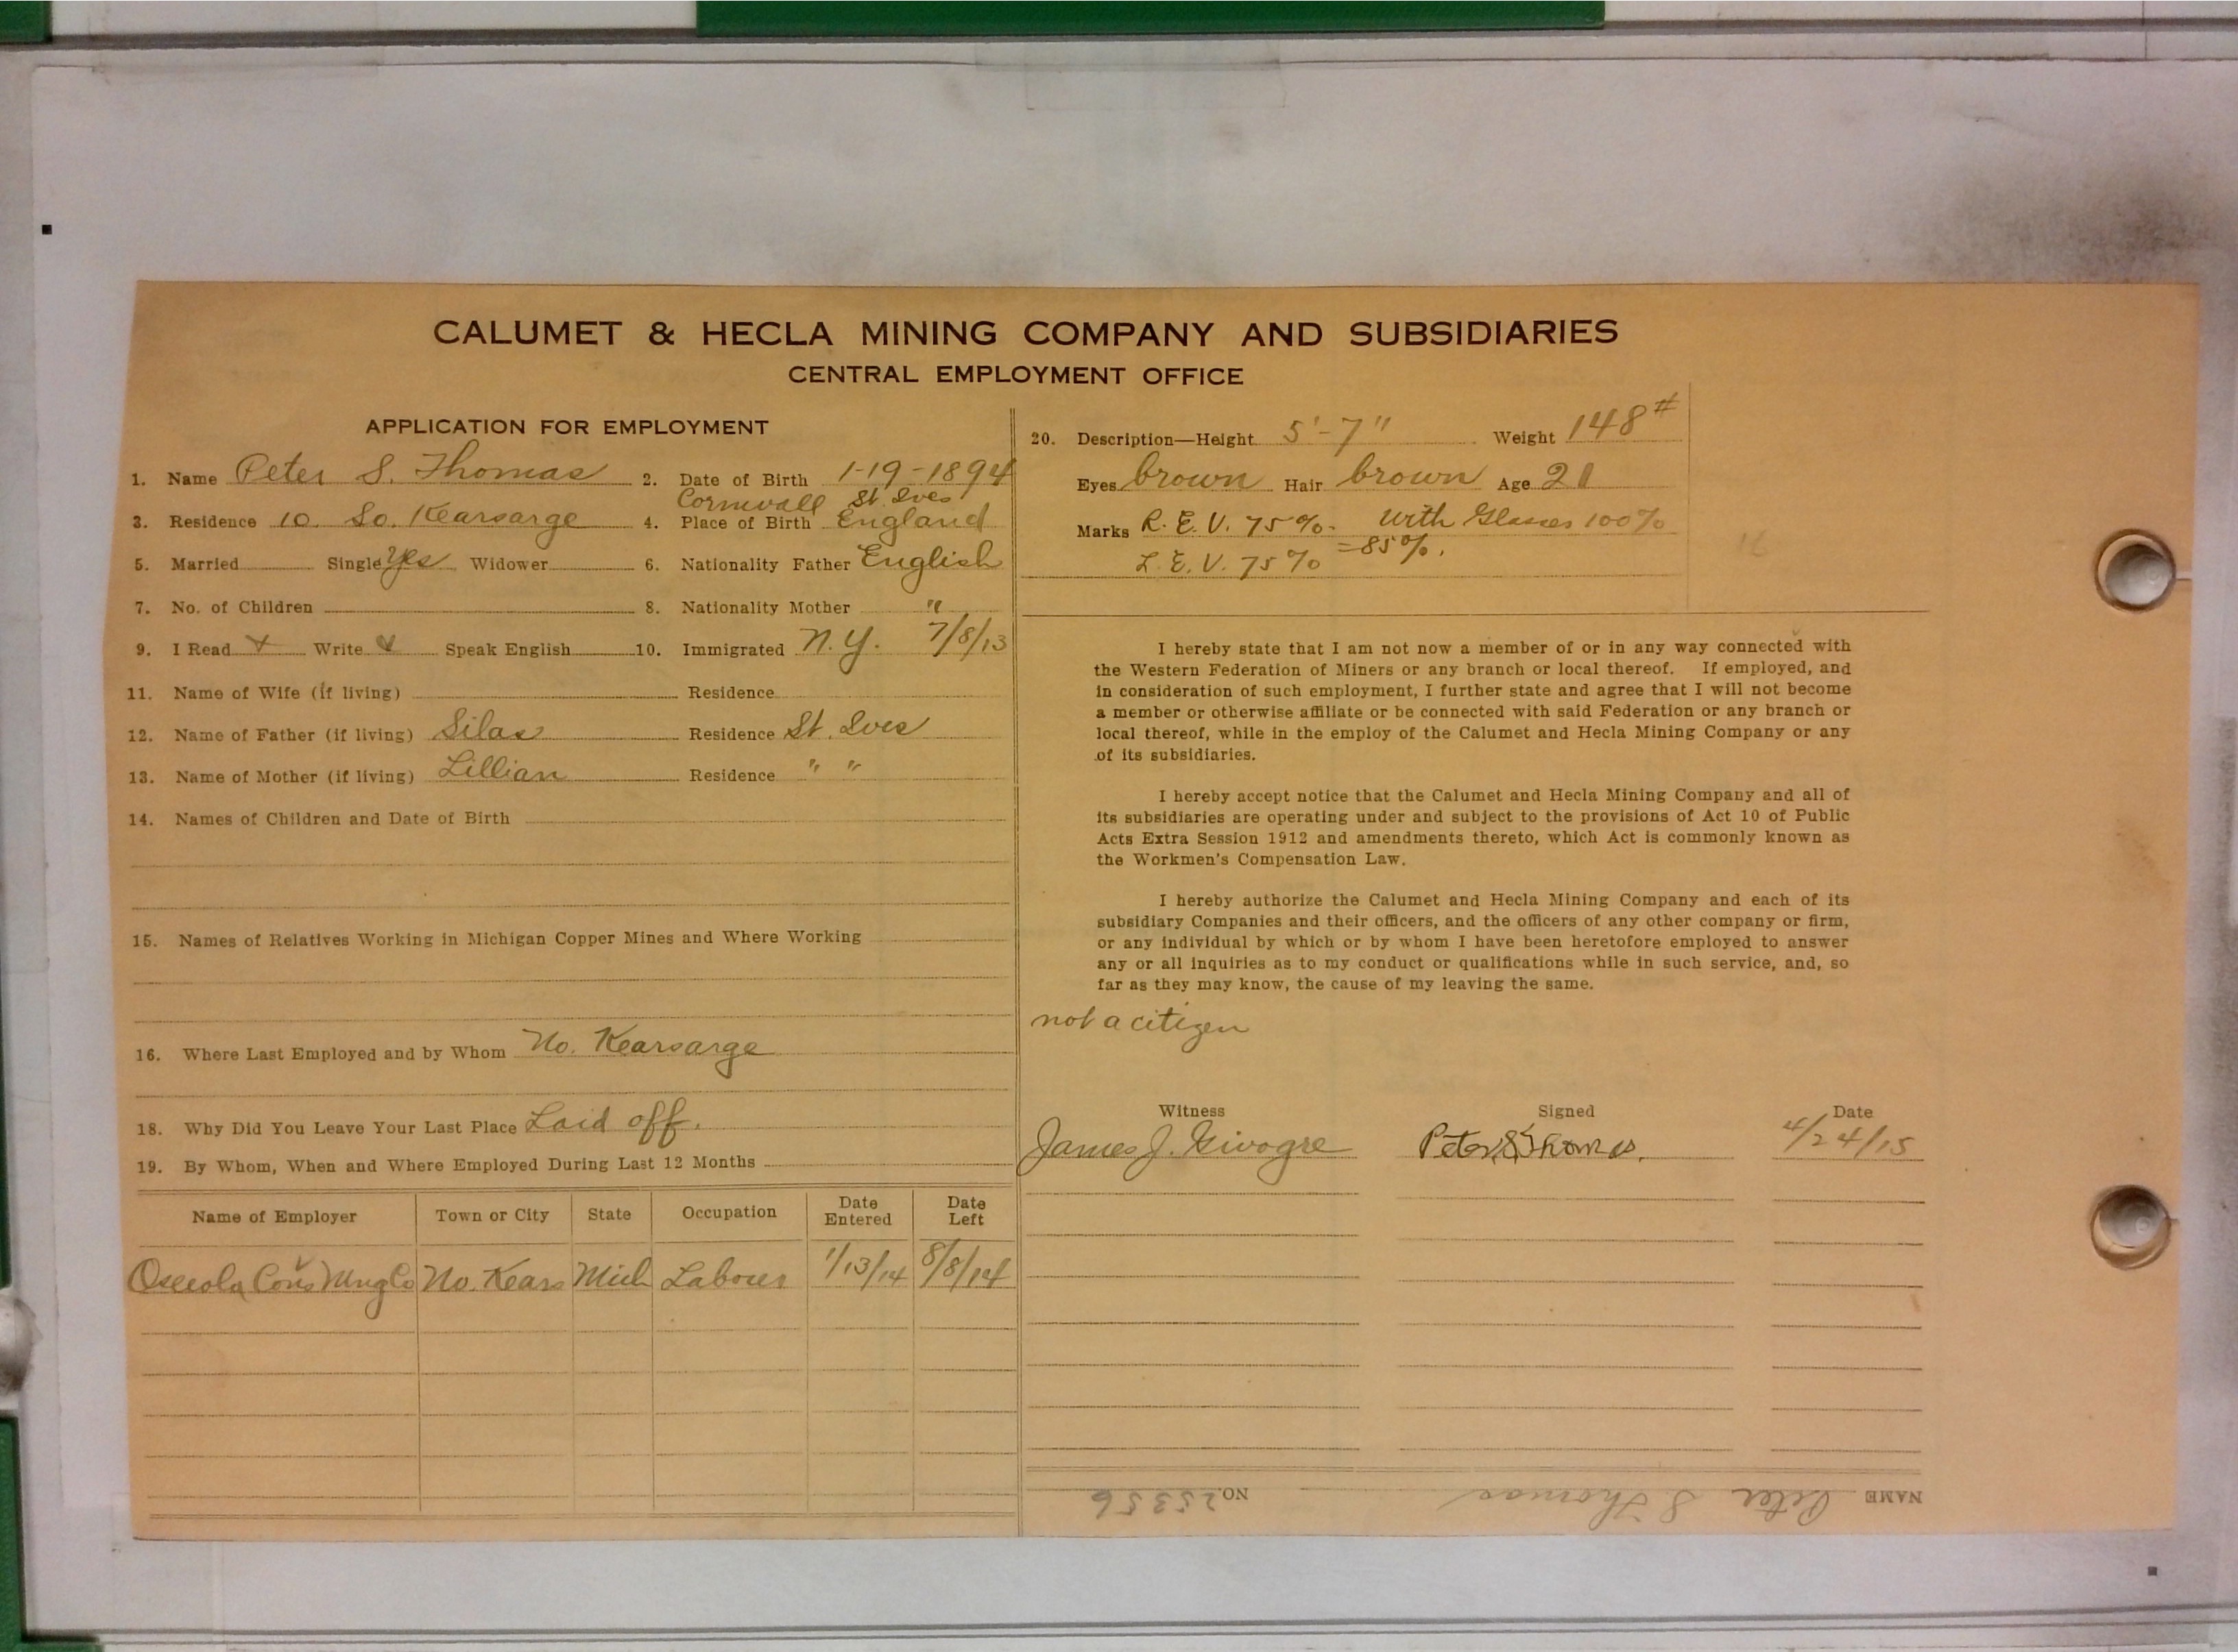 CALUMET & HECLA MINING COMPANY AND SUBSIDIARIES
CENTRAL EMPLOYMENT OFFICE
APPLICATION FOR EMPLOYMENT
1. Name Peter S. Thomas 2. Date of Birth 1-19-1894
Cornwall St. Ives
3. Residence 10. So. Kearsarge 4. Place of Birth England
5. Married Single Yes Widower 6. Nationality Father English
7. No. of Children 8. Nationality Mother "
9. I Read Write Speak English 10. Immigrated N.Y. 7/8/13
11. Name of Wife (if living) Residence
12. Name of Father (if living) Silas Residence St. Ives
13. Name of Mother (if living) Lillian Residence " "
14. Names of Children and Date of Birth
15. Names of Relatives Working in Michigan Copper Mines and Where Working
16. Where Last Employed and by Whom No. Kearsarge
18. Why Did You Leave Your Last Place Laid off.
19. By Whom, When and Where Employed During Last 12 Months
Name of Employer Town or City State Occupation Date Entered Date Left
Osceola Cons Mng Co No. Kears Mich Labour 1/13/14 8/8/14
20. Description—Height 5'-7" Weight 148#
Eyes brown Hair brown Age 21
Marks R.E.V. 75%. With Glasses 100%
L.E.V. 75% =85%.
I hereby state that I am not now a member of or in any way connected with
the Western Federation of Miners or any branch or local thereof. If employed, and
in consideration of such employment, I further state and agree that I will not become
a member or otherwise affiliate or be connected with said Federation or any branch or
local thereof, while in the employ of the Calumet and Hecla Mining Company or any
of its subsidiaries.
I hereby accept notice that the Calumet and Hecla Mining Company and all of
its subsidiaries are operating under and subject to the provisions of Act 10 of Public
Acts Extra Session 1912 and amendments thereto, which Act is commonly known as
the Workmen's Compensation Law.
I hereby authorize the Calumet and Hecla Mining Company and each of its
subsidiary Companies and their officers, and the officers of any other company or firm,
or any individual by which or by whom I have been heretofore employed to answer
any or all inquiries as to my conduct or qualifications while in such service, and, so
far as they may know, the cause of my leaving the same.
not a citizen
Witness Signed Date
James J. Peter S Thomas. 4/24/15
NAME Peter S Thomas NO. 25356